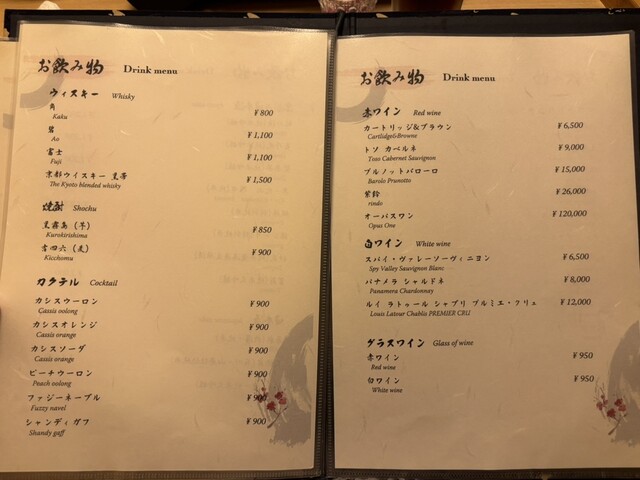 お飲み物 Drink menu
ウィスキー Whisky
角 ¥800
Kaku
碧 ¥1,100
Ao
富士 ¥1,100
Fuji
京都ウイスキー 黒帯 ¥1,500
The Kyoto blended whisky
焼酎 Shochu
黒霧島（芋） ¥850
Kurokirishima
吉四六（麦） ¥900
Kicchomu
カクテル Cocktail
カシスウーロン ¥900
Cassis oolong
カシスオレンジ ¥900
Cassis orange
カシスソーダ ¥900
Cassis orange
ピーチウーロン ¥900
Peach oolong
ファジーネーブル ¥900
Fuzzy navel
シャンディガフ ¥900
Shandy gaff
お飲み物 Drink menu
赤ワイン Red wine
カートリッジ&ブラウン ¥6,500
Cartlidge&Browne
トソ カベルネ ¥9,000
Toso Cabernet Sauvignon
プルノットバローロ ¥15,000
Barolo Prunotto
紫鈴 ¥26,000
rindo
オーパスワン ¥120,000
Opus One
白ワイン White wine
スパイ・ヴァレーソーヴィニヨン ¥6,500
Spy Valley Sauvignon Blanc
パナメラ シャルドネ ¥8,000
Panamera Chardonnay
ルイ ラトゥール シャブリ プルミエ・クリュ ¥12,000
Louis Latour Chablis PREMIER CRU
グラスワイン Glass of wine
赤ワイン ¥950
Red wine
白ワイン ¥950
White wine